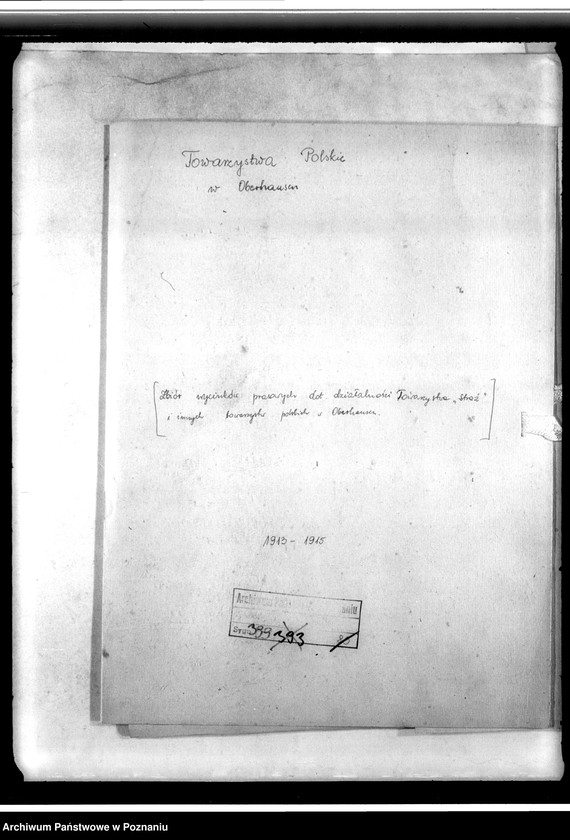 Towarzystwa Polskie
w Oberhausen
[Zbiór wycinków prasowych dot. działalności Towarzystwa „Straż"
i innych towarzystw polskich w Oberhausen.]
1913 - 1915
Archiwum
399 393
Archiwum Państwowe w Poznaniu